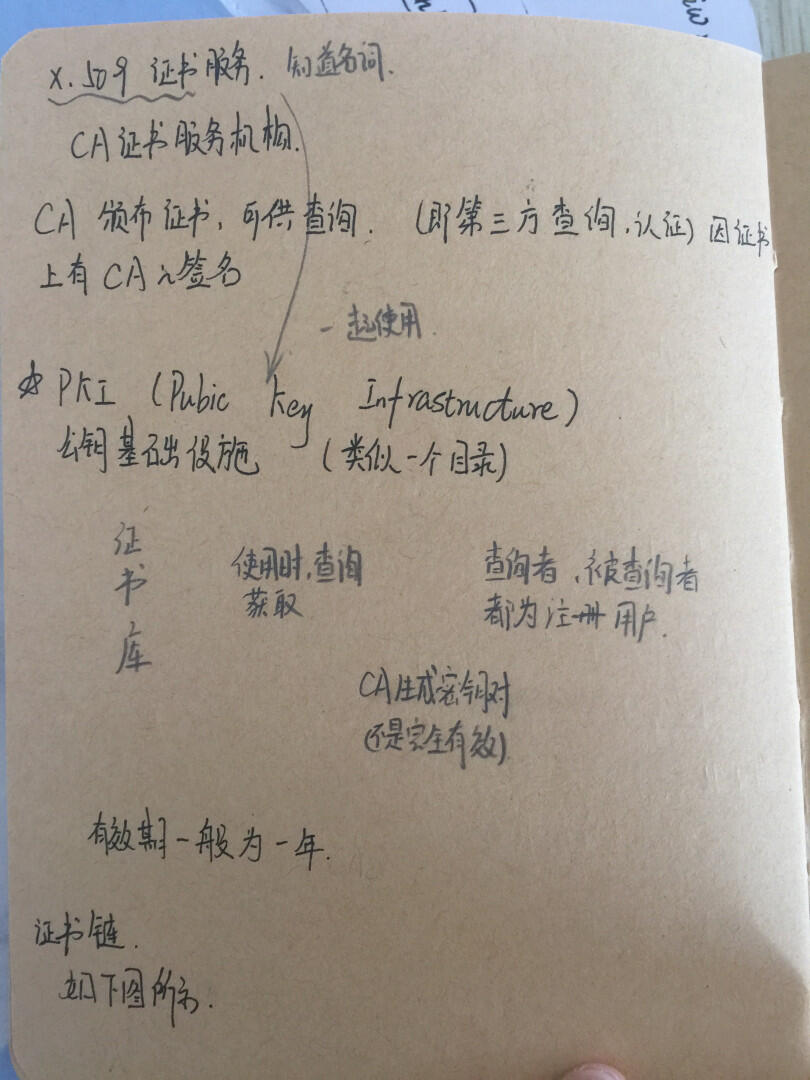 X.509 证书服务. 知道名词.
CA证书服务机构.
CA 颁布证书, 可供查询. (即第三方查询,认证) 因证书
上有CA的签名
一起使用.
☆ PKI (Pubic Key Infrastructure)
公钥基础设施 (类似一个目录)
证书库
使用时,查询
获取
查询者,被查询者
都为注册用户.
CA生成密钥对
(还是完全有效)
有效期一般为一年.
证书链.
如下图所示.